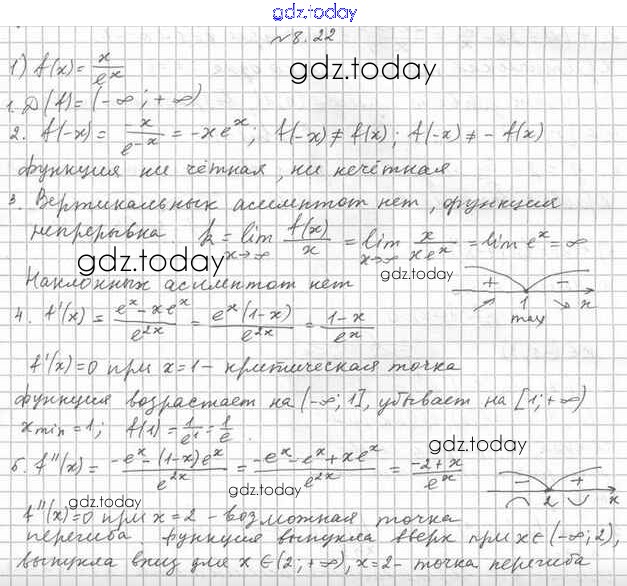 gdz.today
№8.22
1) f(x) = x/e^x
gdz.today
1. D(f) = (-∞; +∞)
2. f(-x) = -x/e^(-x) = -xe^x; f(-x) ≠ f(x); f(-x) ≠ -f(x)
функция ни чётная, ни нечётная
3. Вертикальных асимптот нет, функция
непрерывна k = lim x→∞ f(x)/x = lim x→∞ x/(xe^x) = lim e^x = ∞
gdz.today
gdz.today
Наклонных асимптот нет
+ − 1 max x
4. f'(x) = (e^x - xe^x)/e^(2x) = e^x(1-x)/e^(2x) = (1-x)/e^x
f'(x) = 0 при x = 1 - критическая точка
функция возрастает на (-∞; 1], убывает на [1; +∞)
x min = 1; f(1) = 1/e^1 = 1/e.
gdz.today
5. f''(x) = (-e^x - (1-x)e^x)/e^(2x) = (-e^x - e^x + xe^x)/e^(2x) = (-2+x)/e^x
− + 2 x
gdz.today
gdz.today
f''(x) = 0 при x = 2 - возможная точка
перегиба функция выпукла вверх при x ∈ (-∞; 2),
выпукла вниз для x ∈ (2; +∞), x = 2 - точка перегиба